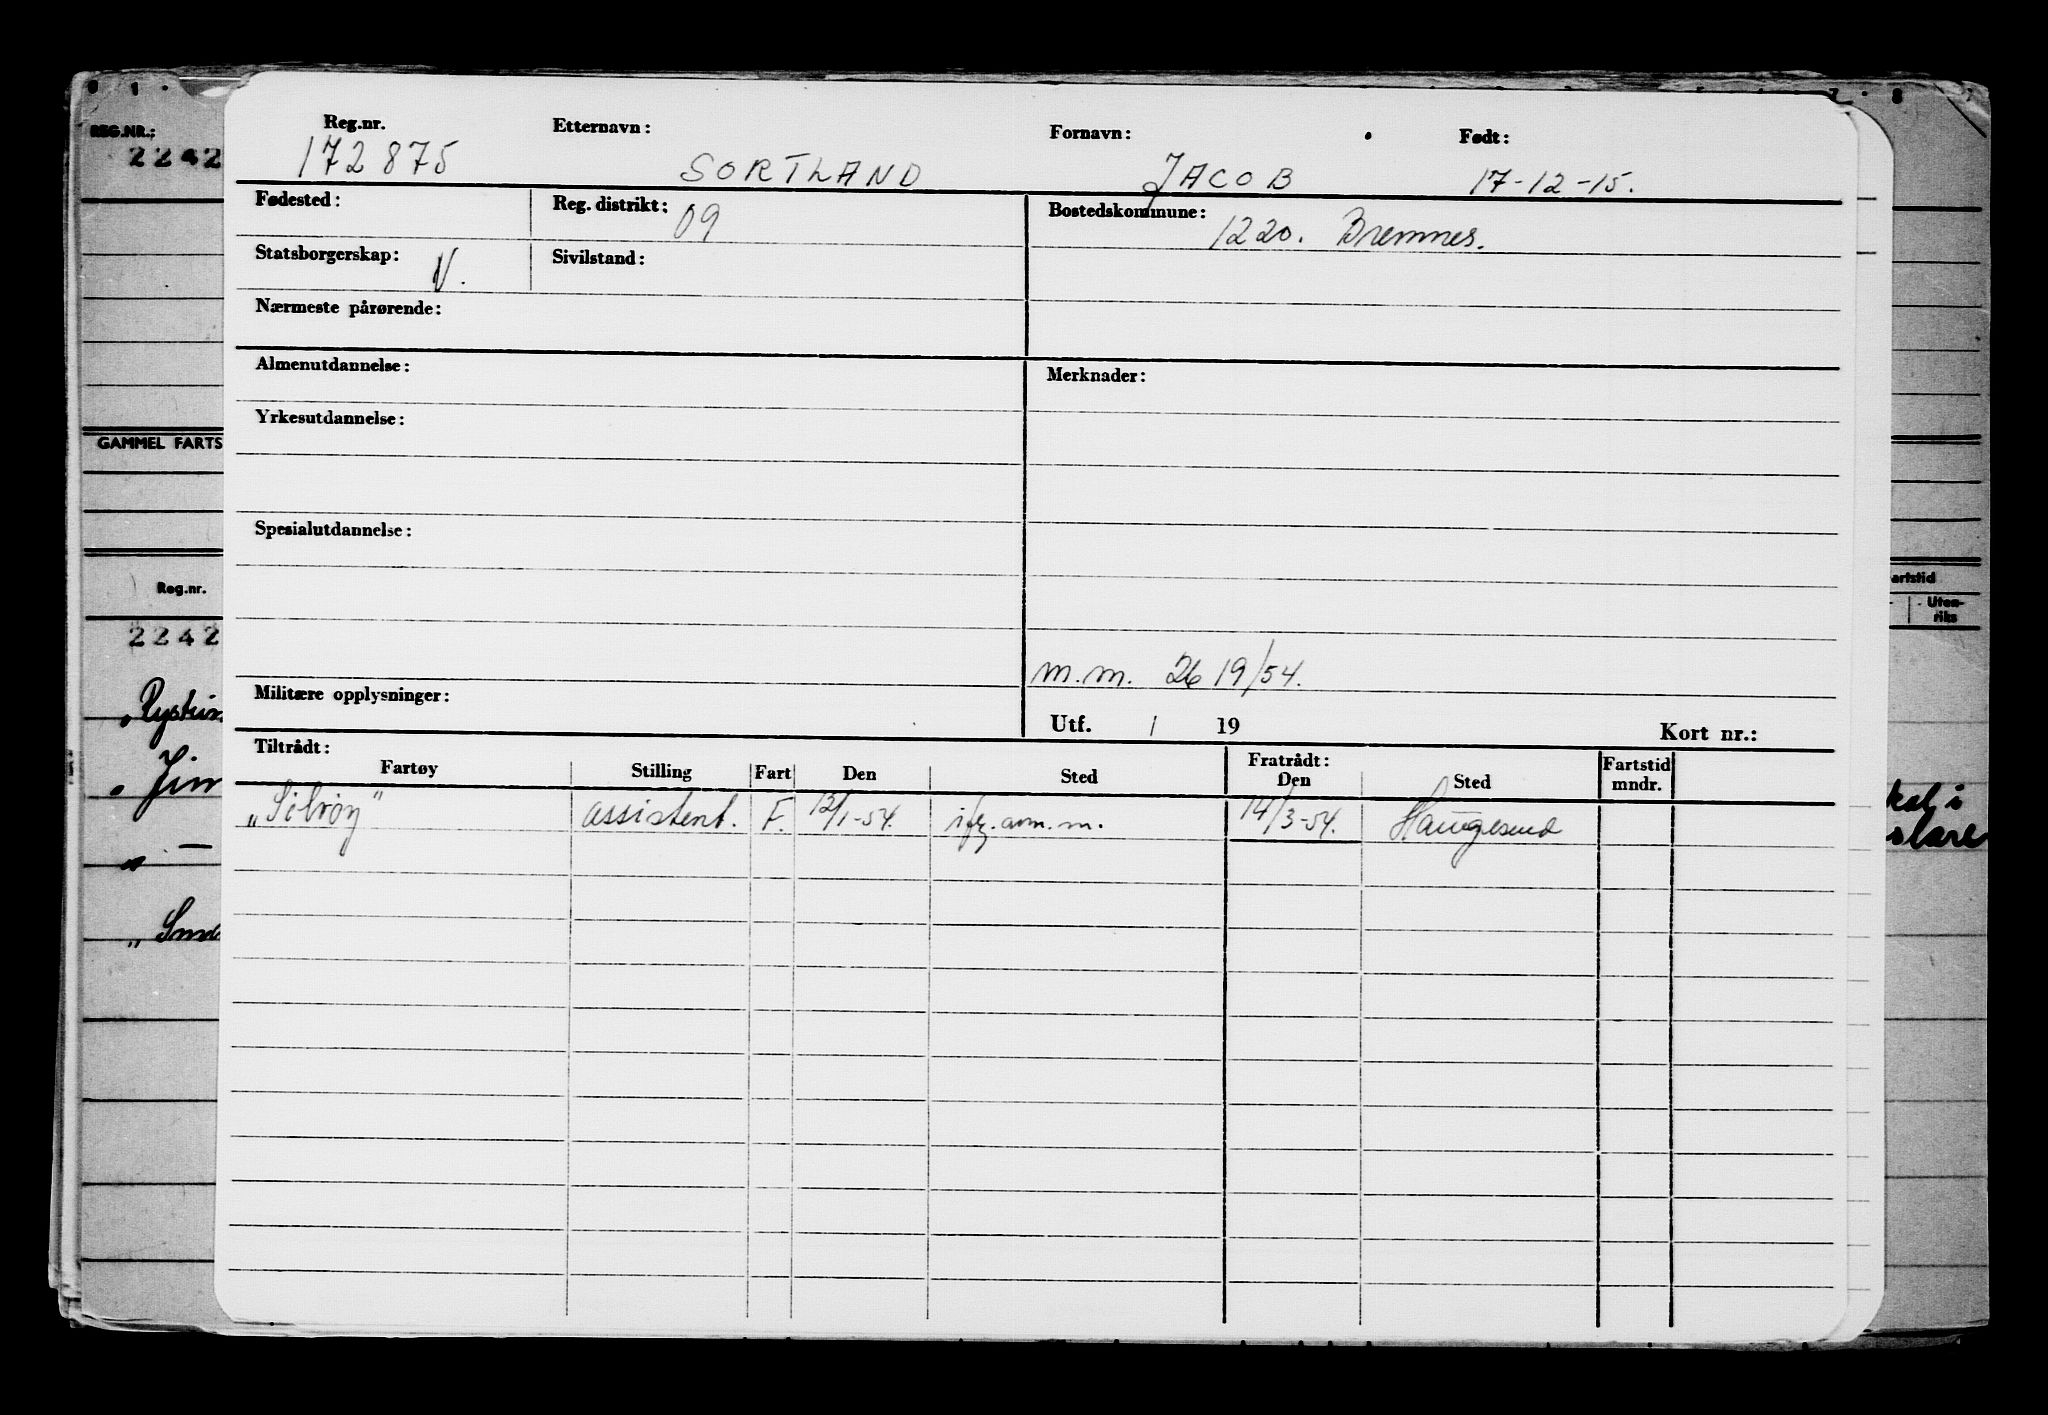 REG.NR.:
2242
GAMMEL FARTS
Reg.nr.
2242
Reg.nr. Etternavn: Fornavn: Født:
172875 SORTLAND JACOB 17-12-15.
Fødested: Reg. distrikt: 09 Bostedskommune: 1220. Bremnes.
Statsborgerskap: N. Sivilstand:
Nærmeste pårørende:
Almenutdannelse: Merknader:
Yrkesutdannelse:
Spesialutdannelse:
m.m. 2619/54.
Militære opplysninger:
Utf. / 19 Kort nr.:
Tiltrådt: Fratrådt:
Fartøy Stilling Fart Den Sted Den Sted Fartstid mndr.
„Sølvøy" assistent. F. 12/1-54. 14/3-54. Haugesund
artstid
Uten-
riks